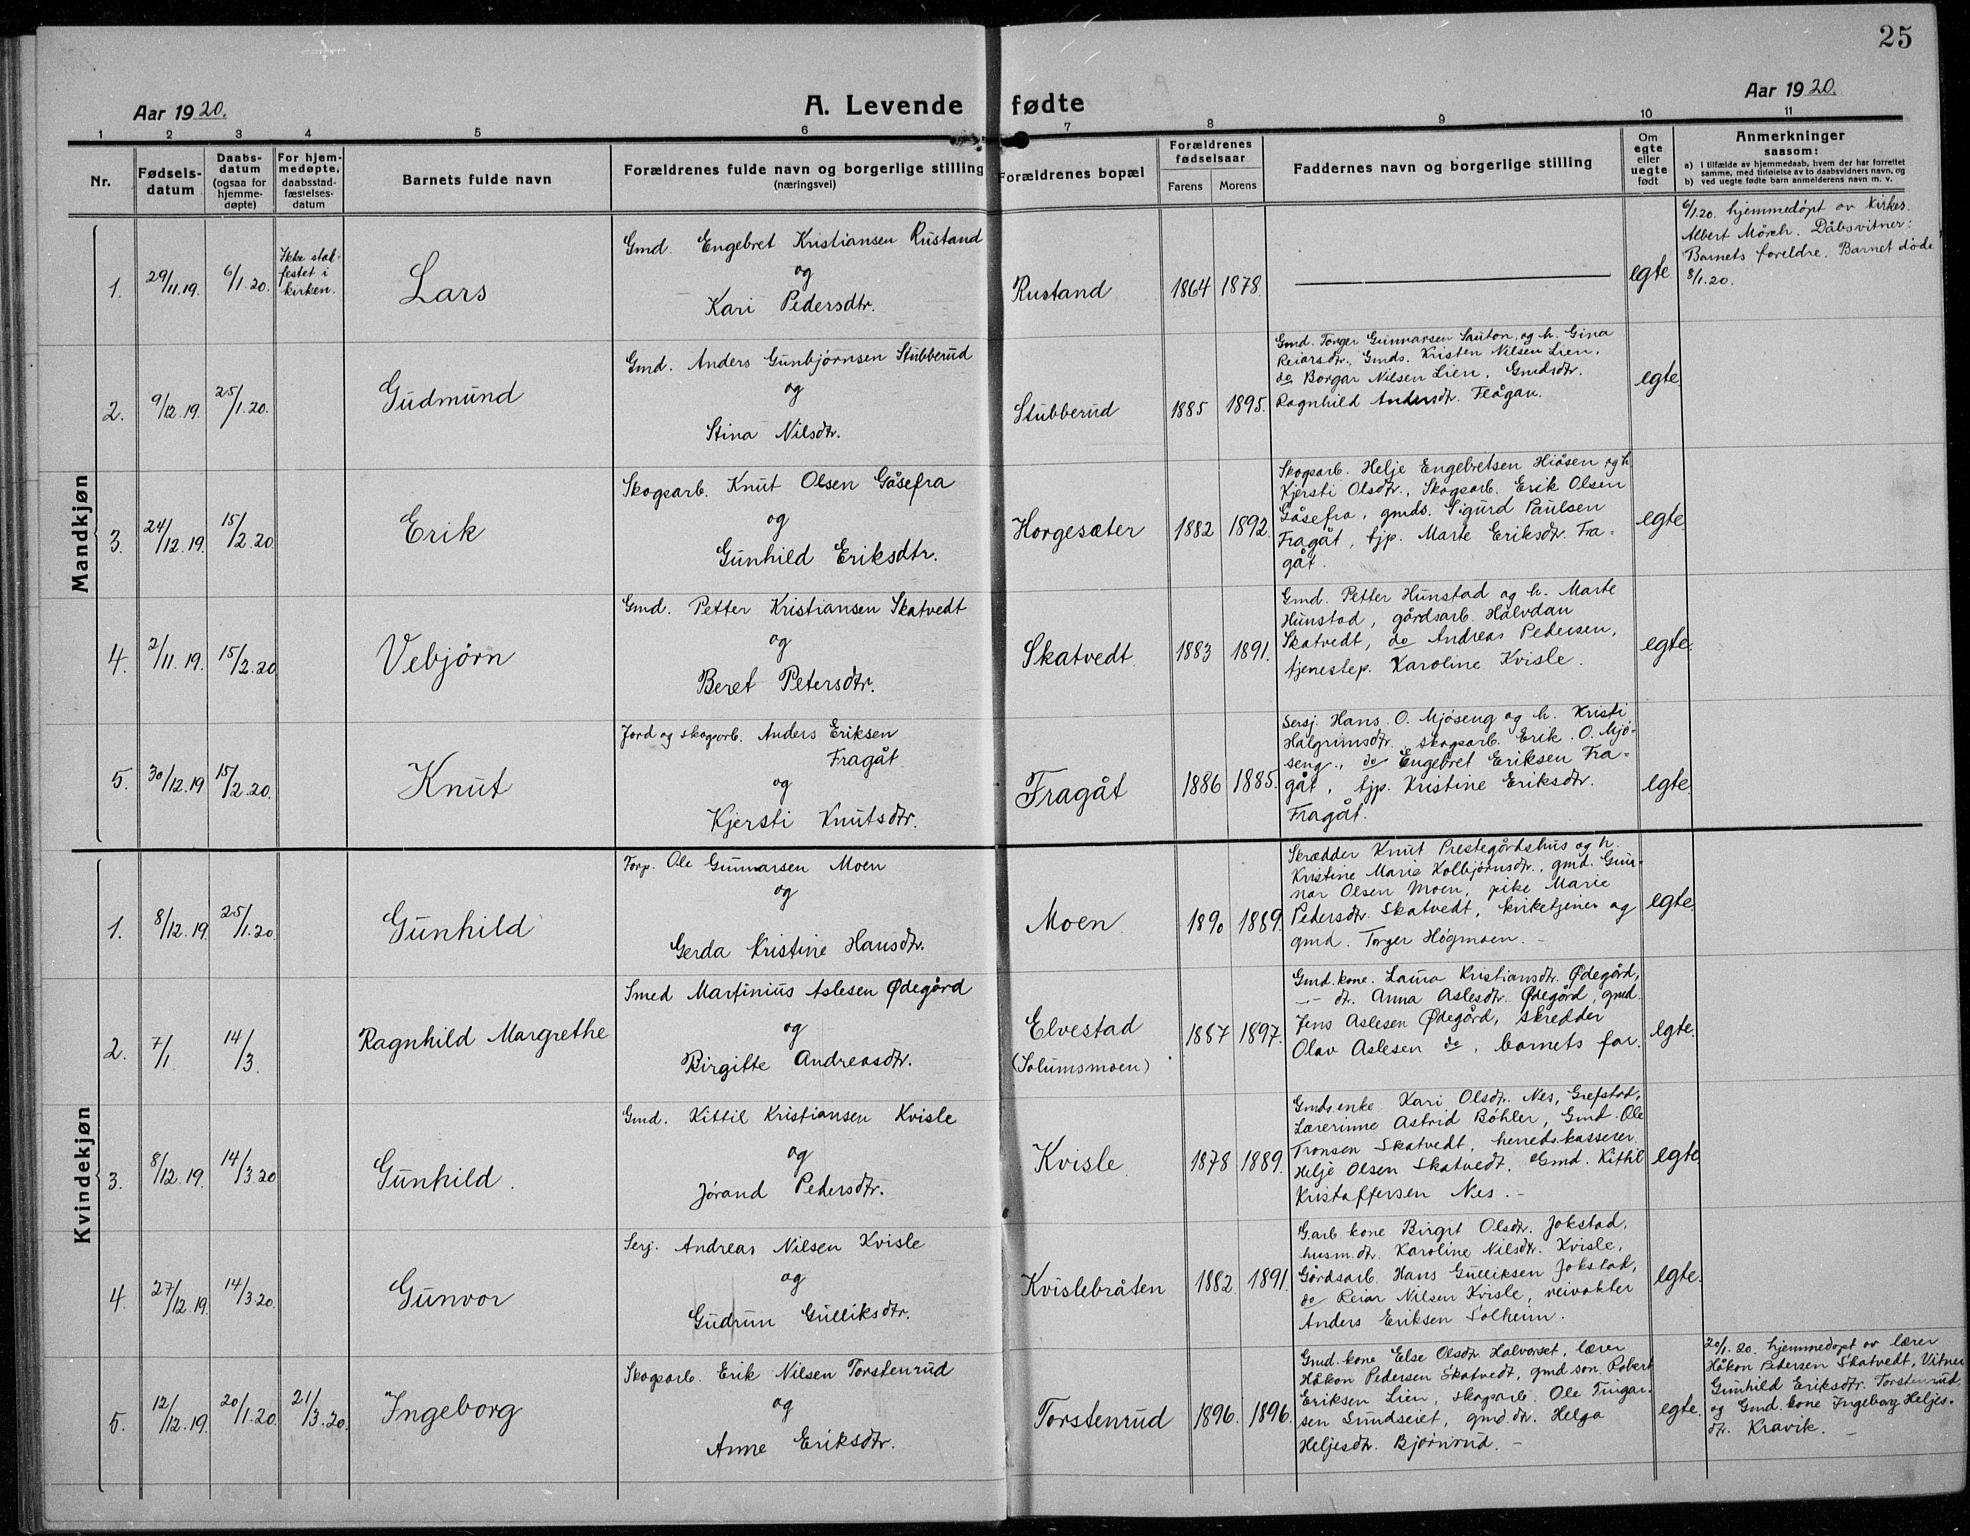 25
Aar 1920.
A. Levende fødte
Aar 1920.
1 2 3 4 5 6 7 8 9 10 11
Nr.
Fødsels-
datum
Daabs-
datum
(ogsaa for
hjemme-
døpte)
For hjem-
medøpte,
daabsstad-
fæstelses-
datum
Barnets fulde navn
Forældrenes fulde navn og borgerlige stilling
(næringsvei)
Forældrenes bopæl
Forældrenes
fødselsaar
Farens Morens
Faddernes navn og borgerlige stilling
Om
egte
eller
uegte
født
Anmerkninger
saasom:
a) I tilfælde av hjemmedaab, hvem der har forrettet
samme, med tilføielse av to daabsvidners navn, og
b) ved uegte fødte barn anmelderens navn m. v.
Mandkjøn
1.
29/11.19.
6/1.20.
Ikke stad-
festet i
kirken.
Lars
Gmd. Engebret Kristiansen Rustand
og
Kari Pedersdtr.
Rustand
1864 1878.
egte
6/1.20. hjemmedøpt av Kirkes.
Albert Mørch. Dåbsvitner:
Barnets foreldre. Barnet døde
8/1.20.
2.
9/12.19.
25/1.20.
Gudmund
Gmd. Anders Gunbjørnsen Stubberud
og
Stina Nilsdtr.
Stubberud
1885 1895.
Gmd. Torger Gunnarsen Sauton og h. Gina
Reiarsdtr., Gmds. Kristen Nilsen Lien,
do Borgar Nilsen Lien, Gmdsdtr.
Ragnhild Andersdtr. Flågan.
egte
3.
24/12.19.
15/2.20
Erik
Skogsarb. Knut Olsen Gåsefra
og
Gunhild Eriksdtr.
Horgesæter
1882 1892.
Skogsarb. Helje Engebretsen Hiåsen og h.
Kjersti Olsdtr., Skogsarb. Erik Olsen
Gåsefra, gmds. Sigurd Paulsen
Fragåt, tjp. Marte Eriksdtr. Fra-
gåt.
egte.
4.
2/11.19.
15/2.20
Vebjørn
Gmd. Petter Kristiansen Skatvedt
og
Beret Petersdtr.
Skatvedt.
1883 1891.
Gmd. Petter Hunstad og h. Marte
Hunstad, gårdsarb. Halvdan
Skatvedt, do Andreas Pedersen,
tjenestep. Karoline Kvisle.
egte.
5.
30/12.19
15/2.20.
Knut
Jord og skogsarb. Anders Eriksen
Fragåt
og
Kjersti Knutsdtr.
Fragåt
1886 1885.
Sersj. Hans O. Mjøseng og h. Kristi
Halgrimsdtr. skogsarb. Erik O. Mjø-
seng., do Engebret Eriksen Fra-
gåt, tjp. Kristine Eriksdtr.
Fragåt.
egte.
Kvindekjøn
1.
8/12.19.
25/1.20.
Gunhild
Torp. Ole Gunnarsen Moen
og
Gerda Kristine Hansdtr.
Moen.
1890 1889.
Skrædder Knut Prestegårdshus og h.
Kristine Marie Kolbjørnsdtr., gmd. Gun-
nar Olsen Moen, pike Marie
Pedersdtr. Skatvedt, kirketjener og
gmd. Torger Høgmoen. -
egte.
2.
7/1.
14/3.
Ragnhild Margrethe
Smed Martinius Aslesen Ødegård
og
Birgitte Andreasdtr.
Elvestad
(Solumsmoen)
1887 1897.
Gmd. kone. Laura Kristiansdtr. Ødegård,
-"- dtr. Anna Aslesdtr. Ødegård, gmd.
Jens Aslesen Ødegård, skredder
Olav Aslesen do, barnets far.
egte.
3.
8/12.19.
14/3.20
Gunhild.
Gmd. Kittil Kristiansen Kvisle
og
Jørand Pedersdtr.
Kvisle.
1878 1889.
Gmds. enke Kari Olsdtr. Nes, Grefstad,
Lærerinne Astrid Bøhler, Gmd. Ole
Tronsen Skatvedt, herredskasserer
Helje Olsen Skatvedt, Gmd. Kittil
Kristoffersen Nes. -
egte
4.
27/12.19.
14/3.20.
Gunvor
Serj. Andreas Nilsen Kvisle
og
Gudrun Gulliksdtr.
Kvislebråten
1882. 1891.
G.arb. kone Birgit Olsdtr. Jokstad,
husm.dtr. Karoline Nilsdtr. Kvisle,
Gårdsarb. Hans Gulliksen Jokstad,
do Reiar Nilsen Kvisle, veivokter
Anders Eriksen Solheim.
egte.
5.
12/12.19.
20/1.20.
21/3.20.
Ingeborg
Skogsarb. Erik Nilsen Torstenrud
og
Anne Eriksdtr.
Torstenrud
1896. 1896.
Gmd. kone Else Olsdtr. Halvorset, lærer
Håkon Pedersen Skatvedt, gmd. søn Robert
Eriksen Lien, skogsarb. Ole Tingar-
sen Sundseiet, gmd. dtr. Helga
Heljesdtr. Bjørnrud. -
egte.
20/1.20. hjemmedøpt av lærer
Håkon Pedersen Skatvedt, Vitner
Gunhild Eriksdtr. Torstenrud
og Gmd. kone Ingeborg Heljes-
dtr. Kravik. -